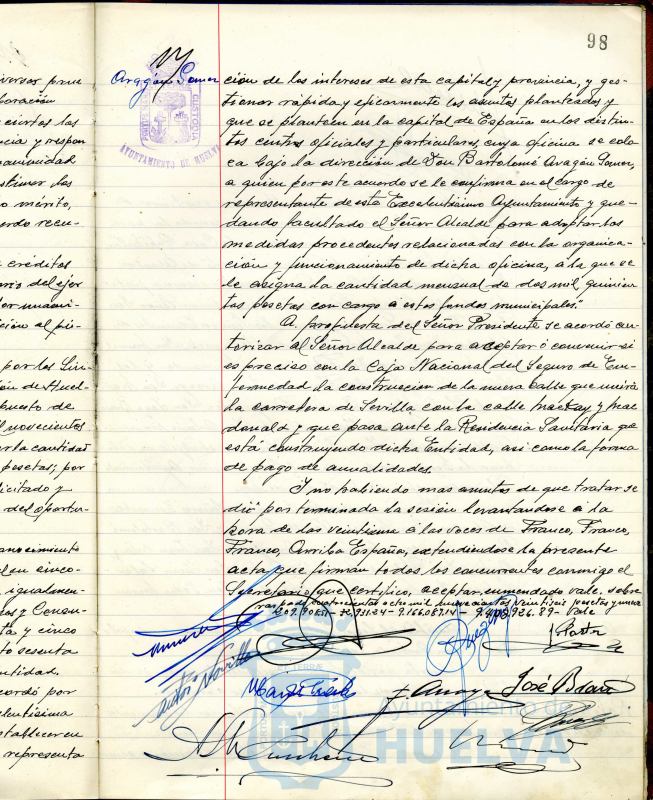 98
Aragón Gomez
AYUNTAMIENTO DE HUELVA
CUSTODIA
ción de los intereses de esta capital y provincia, y ges-
tionar rápida y eficazmente los asuntos planteados y
que se planteen en la capital de España en los distin-
tos centros oficiales y particulares cuya oficina se colo
ca bajo la dirección de Don Bartolomé Aragón Gomez,
a quien por este acuerdo se le confirma en el cargo de
representante de este Excelentísimo Ayuntamiento y que-
dando facultado el Señor Alcalde para adoptar las
medidas procedentes relacionadas con la organiza-
ción y funcionamiento de dicha oficina, a la que se
le asigna la cantidad mensual de dos mil quinien
tas pesetas con cargo a estos fondos municipales."
A propuesta del Señor Presidente se acordó au-
torizar al Señor Alcalde para aceptar ó convenir si
es preciso con la Caja Nacional del Seguro de En-
fermedad la construcción de la nueva Calle que unirá
la carretera de Sevilla con la calle Mackay y Mac
donald y que pasa ante la Residencia Sanitaria que
está construyendo dicha Entidad, así como la forma
de pago de anualidades.
Y no habiendo mas asuntos de que tratar se
dió por terminada la sesión levantandose a la
hora de las veintiuna a las voces de Franco, Franco,
Franco, Arriba España, extendiéndose la presente
acta que firman todos los concurrentes conmigo el
Secretario que certifico, aceptar enmendado vale. sobre
raspado cuatrocientos ocho mil novecientas veintiseis pesetas y nueve
José Brava
Ayuntamiento de
HUELVA
versos prue
boración
ciertos las
cia y respon
animidad
estimar las
mérito,
erdo recu-
créditos
ario del ejer
ción al pú-
por los Sin-
ón de Huel-
puesto de
novecientos
erta cantidad
pesetas; por
licitado y
del oportu-
anocimiento
en cinco-
igualmen-
ta y cinco
to sesenta
ntidad.
cordó por
elentísima
stablecer en
representa